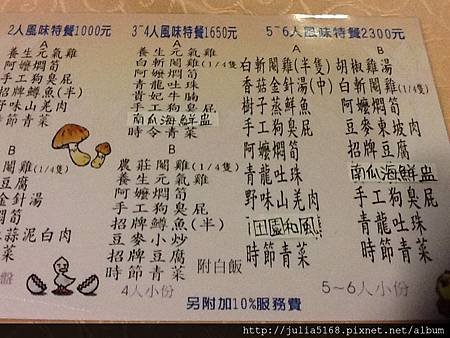 2人風味特餐1000元
A
養生元氣雞
白斬閹雞(1/4隻
阿嬤燜筍
手工狗臭屁
招牌鱒魚(半)
野味山羌肉
時節青菜
B
閹雞(1/4隻)
豆腐
金針湯
燜筍
蒜泥白肉
青菜
3~4人風味特餐1650元
A
養生元氣雞
白斬閹雞(1/4隻
阿嬤燜筍
青龍吐珠
貴妃牛腩
手工狗臭屁
南瓜海鮮盅
時令青菜
B
農莊閹雞(1/4隻)
養生元氣雞
阿嬤燜筍
手工狗臭屁
招牌鱒魚(半)
豆麥小炒
招牌豆腐
時節青菜
附白飯
4人小份
5~6人風味特餐2300元
A
白斬閹雞(半隻)
香菇金針湯(中)
樹子蒸鮮魚
手工狗臭屁
阿嬤燜筍
青龍吐珠
野味山羌肉
田園和風
時節青菜
B
胡椒雞湯
白斬閹雞(1/4隻)
阿嬤燜筍
豆麥東坡肉
招牌豆腐
南瓜海鮮盅
手工狗臭屁
青龍吐珠
時節青菜
5~6人小份
另附加10%服務費
http://julia5168.pixnet.net/album